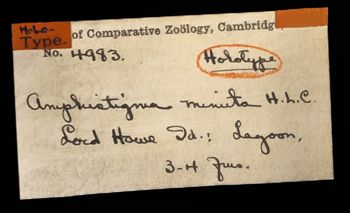 Holo-
Type.
of Comparative Zoölogy, Cambridge,
No. 4983.
Holotype
Amphistigma minuta H.L.C.
Lord Howe Id.: Lagoon,
3-4 fms.